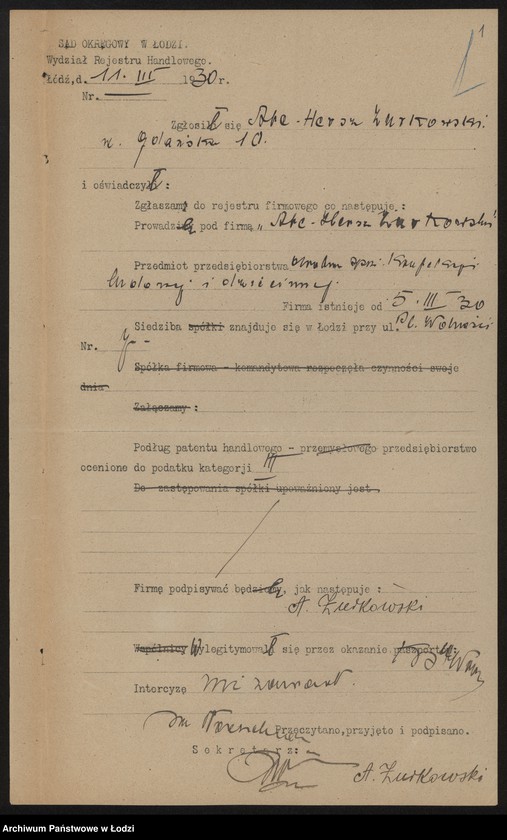 1
SĄD OKRĘGOWY W ŁODZI.
Wydział Rejestru Handlowego.
Łódź,d. 11. III 1930 r.
Nr.
Zgłosił się Abe-Hersz Żurkowski
Gdańska 10.
i oświadczył :
Zgłaszam do rejestru firmowego co następuje :
Prowadzi pod firmą "Abe-Hersz Żurkowski
Przedmiot przedsiębiorstwa
i dziecinnej.
Firma istnieje od 5. III 30
Siedziba spółki znajduje się w Łodzi przy ul. Pl. Wolności
Nr.
Spółka firmowa - komandytowa rozpoczęła czynności swoje
dnia
Załączamy :
Podług patentu handlowego - przemysłowego przedsiębiorstwo
ocenione do podatku kategorji III
Do zastępowania spółki upoważniony jest
Firmę podpisywać będę, jak następuje :
A. Żurkowski
Wspólnicy Wylegitymował się przez okazanie
Intercyzę nie zawarł.
Przeczytano,przyjęto i podpisano.
Sekretarz:
A. Żurkowski
Archiwum Państwowe w Łodzi